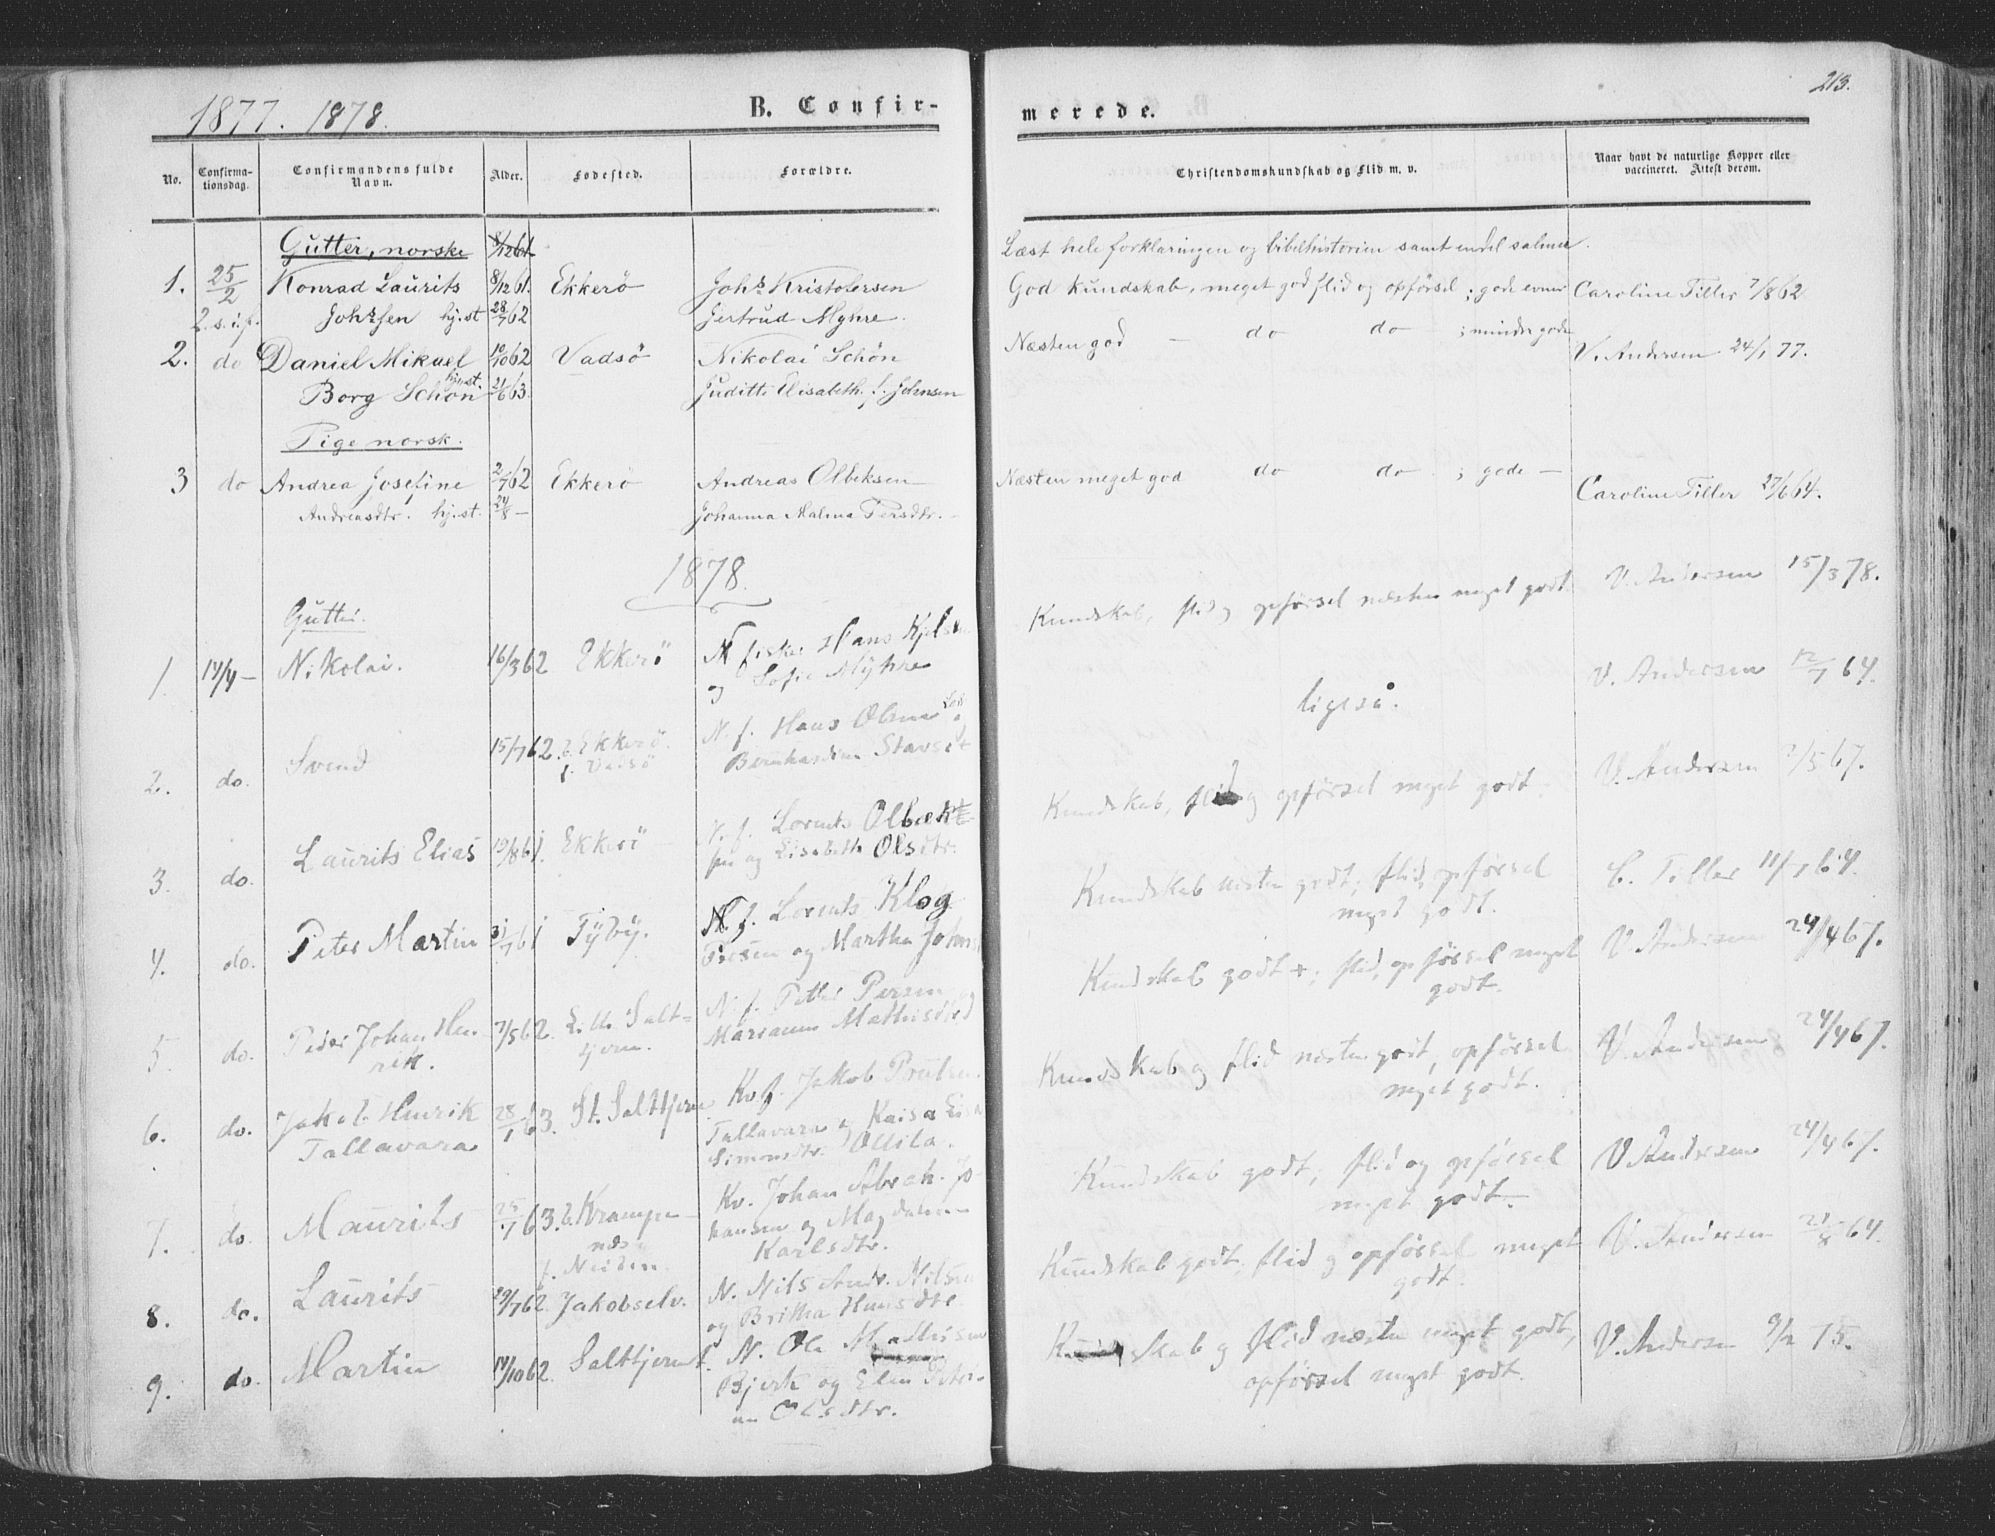 1877. 1878.
B. Confir-
No.
Confirma-
tionsdag.
Confirmandens fulde
Navn.
Alder.
Fødested.
Forældre.
Gutter, norske 8/12 61
1. 25/2 Konrad Laurits 8/12 61. Ekkerö Johs Kristofersen
2. s. i. f. Johsen hj.st 28/7 62 Gertrud Myhre.
2. do Daniel Mikael 10/10 62 Vadsö Nikolai Schön
hj.st.
Borg Schön 21/6 63. Juditte Elisabeth f. Johnsen
Pige norsk.
3 do Andrea Josefine 2/7 62 Ekkerö Andreas Olbeksen
Andreasdtr. hj.st. 24/8 — Johanna Malina Persdtr.
1878.
Gutter.
1. 14/4 — Nikolai. 16/3 62 Ekkerö N. fisker Hans
og Sofie Myhre
2. do. Svend 15/7 62. b. Ekkerö. N. f. Hans Olsen
f. Vadsö Stavset
3. do. Laurits Elias 19/8 61. Ekkerö N. f. Lorents Olbekt-
sen og Lisabeth Olsdtr.
4. do. Peter Martin 31/7 61 Tyby. N. f. Lorents Klog
og Martha Johns
5 do. Peder Johan Hen- 7/5 62. L. Salt- N. f. Petter Persen
rik. tjern. Mathisdtr
6. do. Jakob Henrik 28/1 63. St. Salttjern Kv. f. Jakob
Tallavara Tallavara og Kaisa
Simonsdtr. Ollila.
7. do. Maurits 25/7 63. b. Krampe- Kv. Johan Abrah. Jo-
næs hansen og Magdalena
f. Neiden. Karlsdtr.
8. do. Laurits 29/7 62. Jakobselv. N. Nils Andr. Nilsen
og Britha Hansdtr
9. do. Martin 14/10 62. Salttjern N. Ole Mathisen
Bjerk og Elen Peter-
Olsdtr.
213.
merede.
Christendomskundskab og Flid m. v.
Naar havt de naturlige Kopper eller
vaccineret. Attest derom.
Læst hele forklaringen og bibelhistorien samt endel salmer.
God kundskab, meget god flid og opförsel; gode evner Caroline Tiller 7/8 62
Næsten god — do do — ; mindre gode V. Andersen 24/1 77.
Næsten meget god do do ; gode — Caroline Tiller 27/6 64.
Kundskab, flid og opförsel næsten meget godt. V. Andersen 15/3 78.
ligeså. V. Andersen 12/7 64.
Kundskab, flid og opförsel meget godt. V. Andersen /5 67.
Kundskab næsten godt; flid, opförsel C. Tiller 11/7 64.
meget godt.
Kundskab godt +; flid, opförsel meget V. Andersen 24/4 67.
godt.
Kundskab og flid næsten godt, opförsel V. Andersen 24/4 67.
meget godt.
Kundskab godt; flid og opförsel V Andersen 24/4 67.
meget godt.
Kundskab godt, flid og opförsel meget V. Andersen 21/8 64.
godt.
Kundskab og flid næsten meget godt, V. Andersen 9/2 75.
opförsel meget godt.